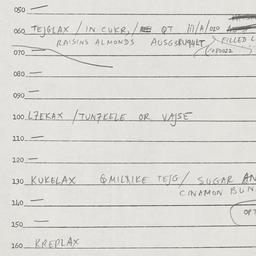 050 —
060 TEJGLAX / IN CUKR, / QT
RAISINS ALMONDS AUSGERUHLT FILLED
070 —
080 —
090 —
100 LZEKAX / TUNZKELE OR VAJSE
110 —
120 —
130 KUKELAX GMILXIKE TEJG / SUGAR AN
CINAMON BUN
140 —
—
150
160 KREPLAX